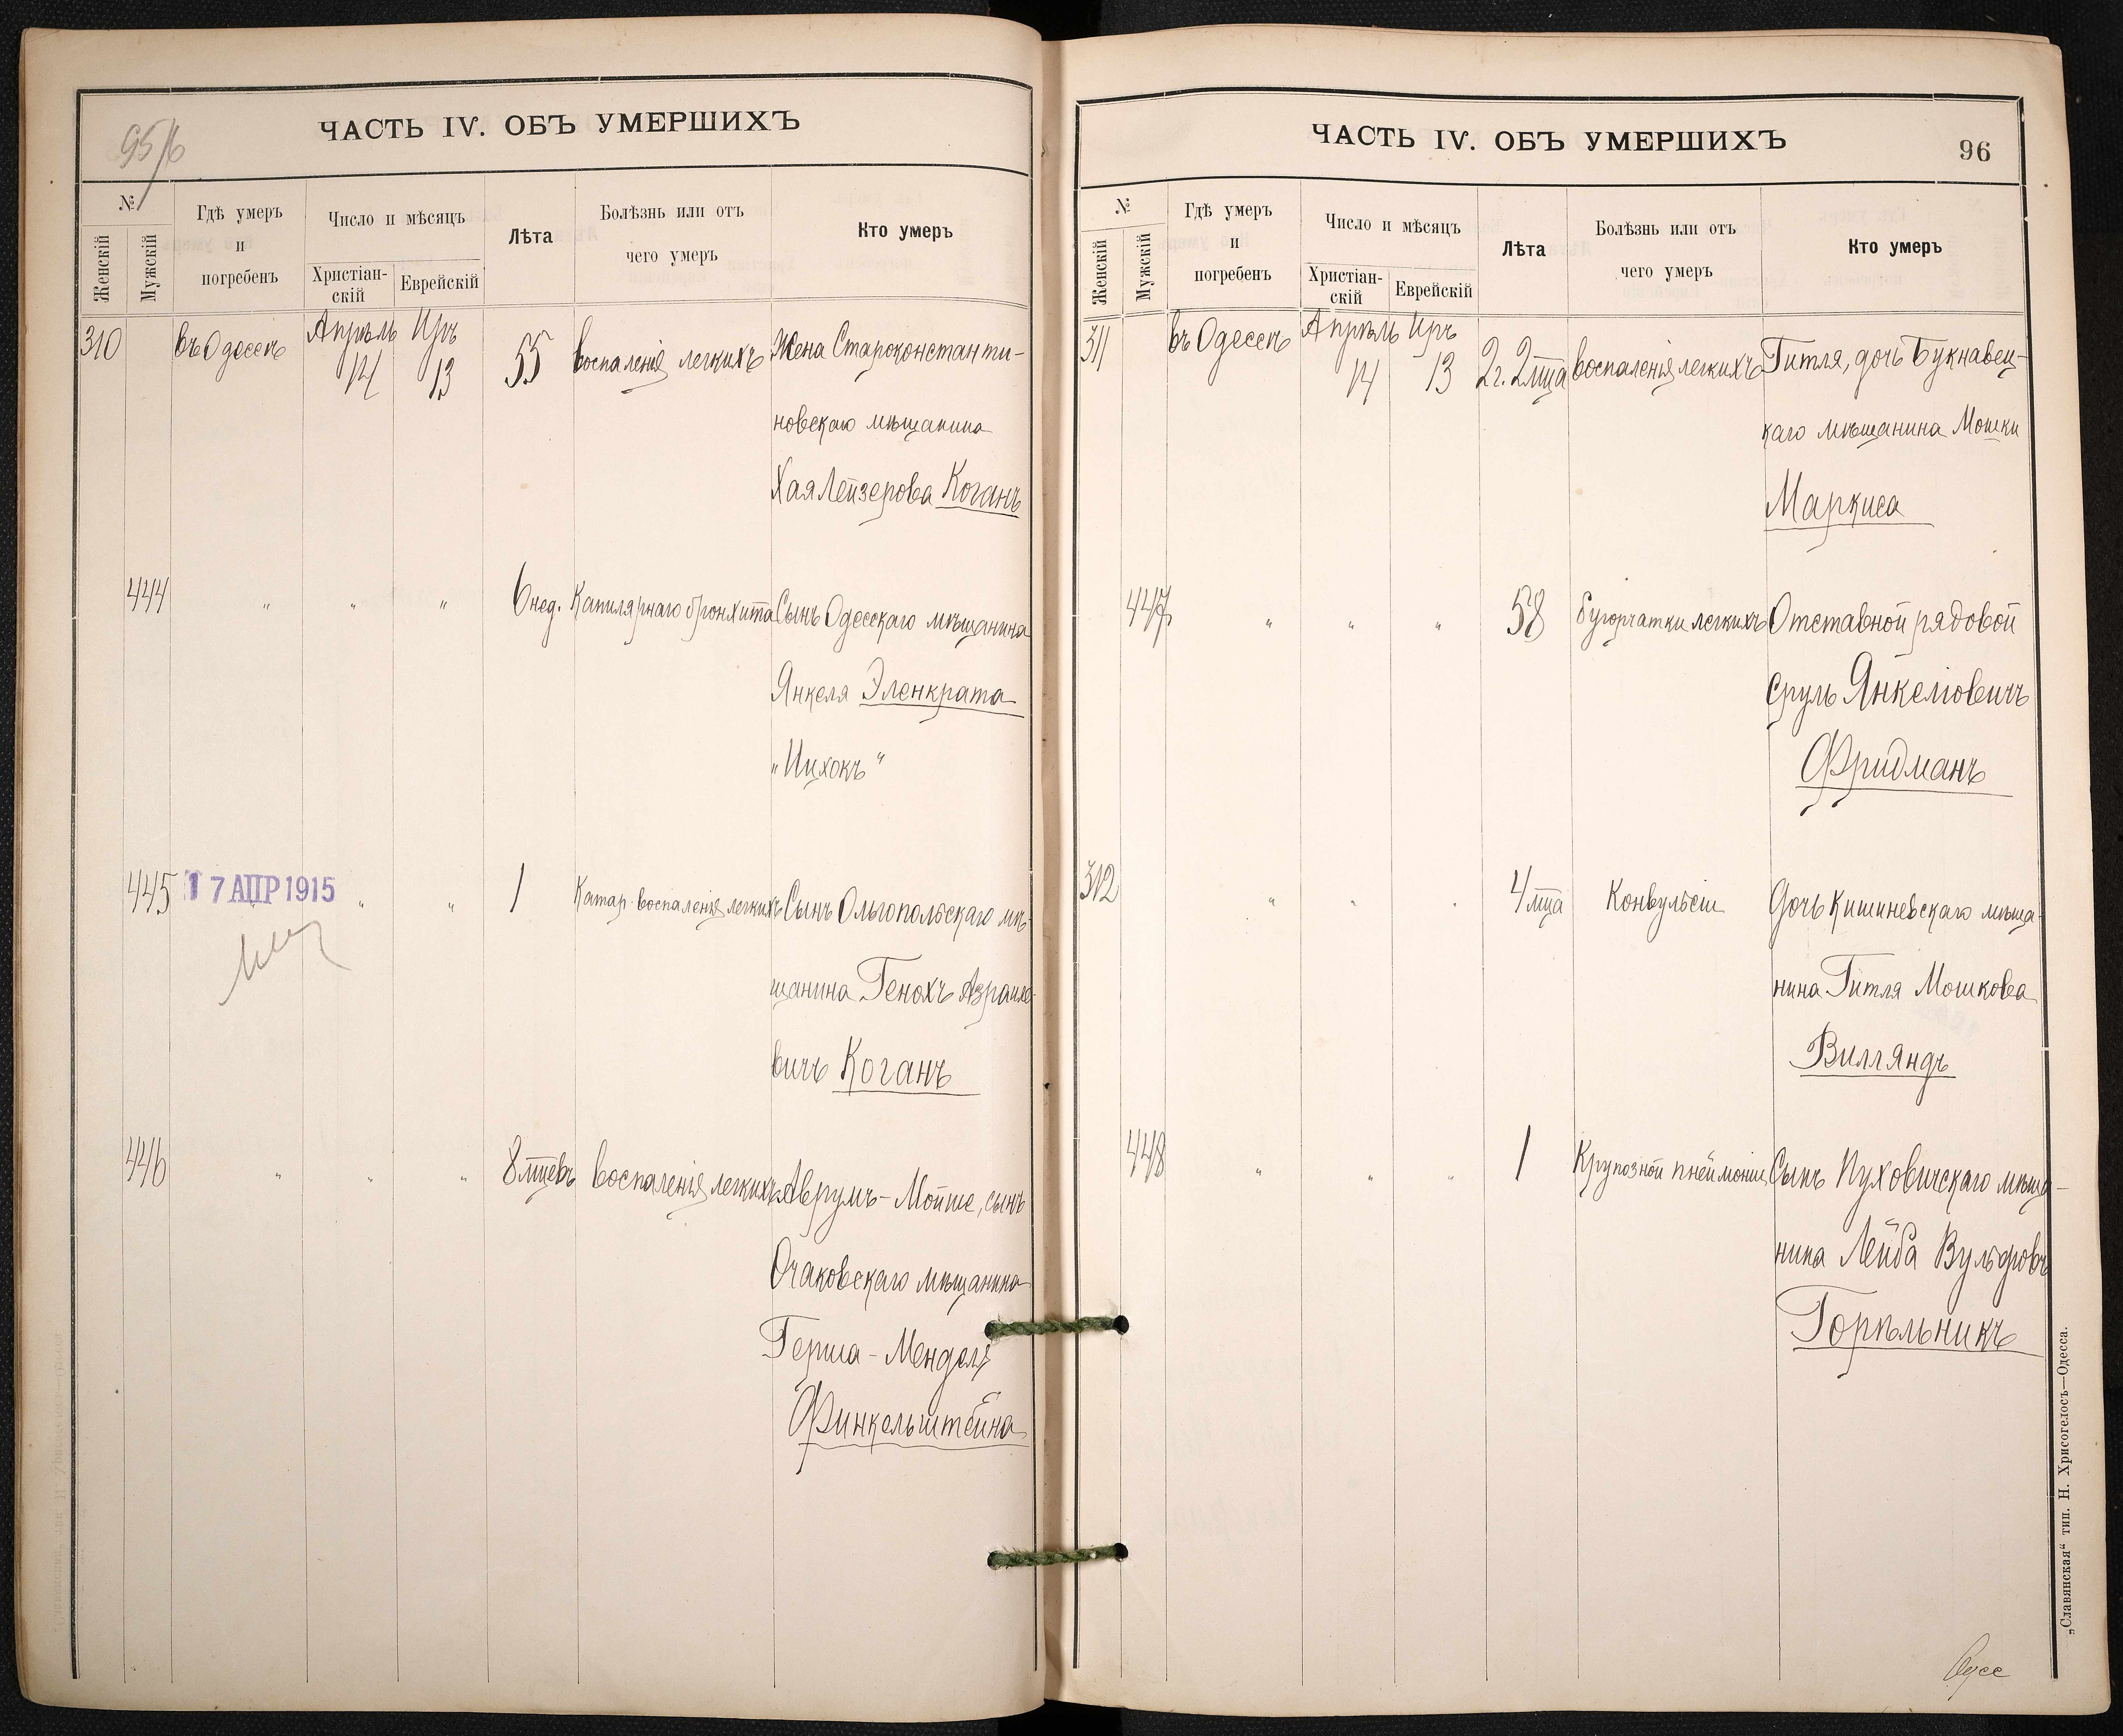 95/б
ЧАСТЬ IV. ОБЪ УМЕРШИХЪ
№
Женскій
Мужскій
Гдѣ умеръ
и
погребенъ
Число и мѣсяцъ
Христіан-
скій
Еврейскій
Лѣта
Болѣзнь или отъ
чего умеръ
Кто умеръ
310 въ Одессѣ Апрѣль 14 Иръ 13 55 воспаленія легкихъ Жена Староконстанти-
новскаго мѣщанина
Хая Лейзерова Коганъ
444 " " " 6 нед. Капилярнаго бронхита Сынъ Одесскаго мѣщанина
Янкеля Эленкрата
„Ицхокъ“
445 17 АПР 1915 " " 1 Катар. воспаленія легкихъ Сынъ Ольгопольскаго мѣ-
щанина Генохъ Азраило-
вичъ Коганъ
446 " " " 8 мцевъ воспаленія легкихъ Аврумъ-Мойше, сынъ
Очаковскаго мѣщанина
Герша-Менделя
Финкельштейна
ЧАСТЬ IV. ОБЪ УМЕРШИХЪ
96
№
Женскій
Мужскій
Гдѣ умеръ
и
погребенъ
Число и мѣсяцъ
Христіан-
скій
Еврейскій
Лѣта
Болѣзнь или отъ
чего умеръ
Кто умеръ
311 въ Одессѣ Апрѣль 14 Иръ 13 2 г. 2 мца воспаленія легкихъ Гитля, дочь Букнавец-
каго мѣщанина Мошки
Маркиса
447 " " " 58 бугорчатки легкихъ Отставной рядовой
Сруль Янкеліовичъ
Фридманъ
312 " " " 4 мца Конвульсіи Дочь Кишиневскаго мѣща-
нина Гитля Мошкова
Вилляндъ
448 " " " 1 Крупозной пнеймоніи Сынъ Пуховичскаго мѣща-
нина Лейба Вульфовъ
Горѣльникъ
„Славянская“ тип. Н. Хрисогелосъ—Одесса.